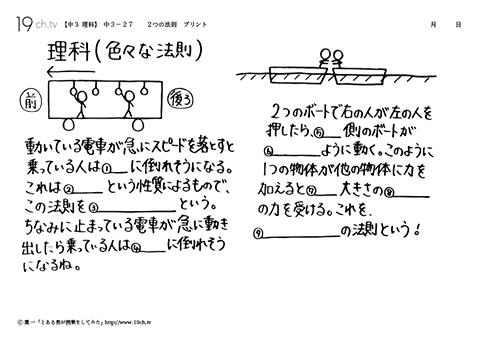 19ch.tv 【中3 理科】 中3-27 2つの法則 プリント 月 日
理科(色々な法則)
前 後ろ
動いている電車が急にスピードを落とすと
乗っている人は①__に倒れそうになる。
これは②____という性質によるもので、
この法則を③________という。
ちなみに止まっている電車が急に動き
出したら乗っている人は④__に倒れそう
になるね。
2つのボートで右の人が左の人を
押したら、⑤__側のボートが
⑥______ように動く。このように
1つの物体が他の物体に力を
加えると⑦__大きさの⑧____
の力を受ける。これを、
⑨________の法則という!
© 葉一「とある男が授業をしてみた」http://www.19ch.tv